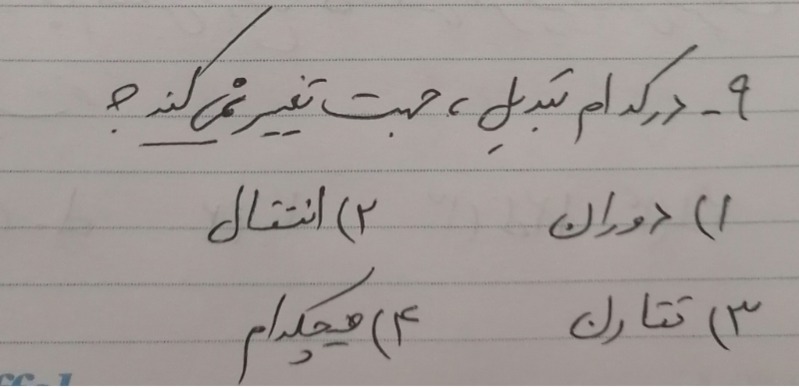 ۹- در کدام تبدیل، جهت تغییر نمی کند؟
۱) دوران ۲) انتقال
۳) تقارن ۴) هیچکدام